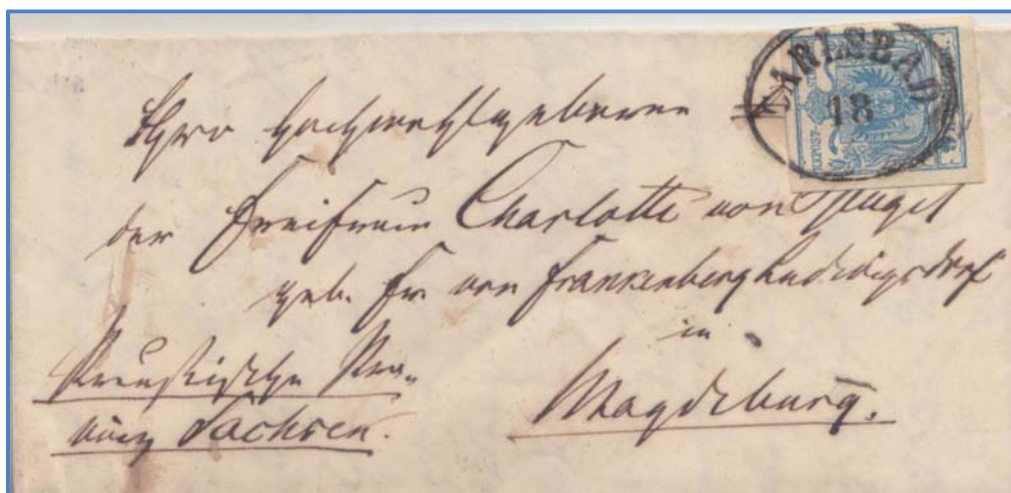 KARLSBAD
18
KKPOST-
Ihro Hochwohlgeboren
der Freifrau Charlotte von
geb. Fr von Frankenberg Ludwigsdorf
in
Magdeburg.
Preußische Pro-
vinz Sachsen.